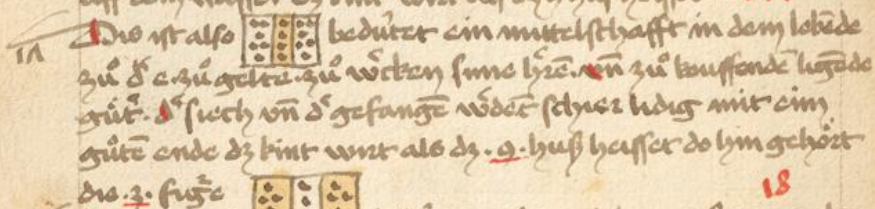 Dis ist also bedu̍tet ein mittelschafft in dem lebēde
zuͦ dʼ e. zuͦ gelte. zuͦ wʼcken sune hʼrē. vn̄ zuͦ kouffendē ligēde
guͤtʼ. dʼ siech vn̄ dʼ gefangē wʼdēt schier lidig mit eim
guͦtē ende dz kint wirt als dz .9. huß heisset do hin gehoͤrt
dis .3. figʼe
18